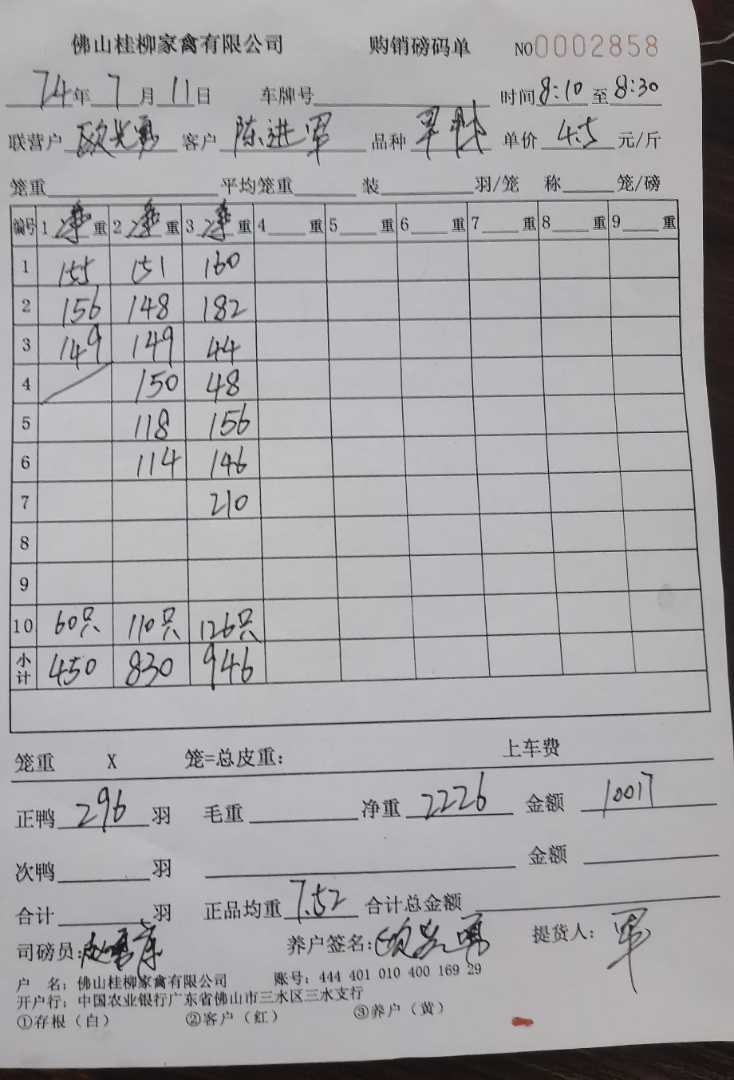 佛山桂柳家禽有限公司 购销磅码单 NO0002858
24年7月11日 车牌号 时间8:10至8:30
联营户 欧光勇 客户 陈进军 品种 单价 4.5 元/斤
笼重 平均笼重 装 羽/笼 称 笼/磅
编号 1 净重 2 净重 3 净重 4 重 5 重 6 重 7 重 8 重 9 重
1 155 151 160
2 156 148 182
3 149 149 44
4 150 48
5 118 156
6 114 146
7 210
8
9
10 60只 110只 126只
小计 450 830 946
笼重 X 笼=总皮重: 上车费
正鸭 296 羽 毛重 净重 2226 金额 10017
次鸭 羽 金额
合计 羽 正品均重 7.52 合计总金额
司磅员: 养户签名:欧光勇 提货人: 军
户 名: 佛山桂柳家禽有限公司 账号: 444 401 010 400 169 29
开户行: 中国农业银行广东省佛山市三水区三水支行
①存根（白） ②客户（红） ③养户（黄）